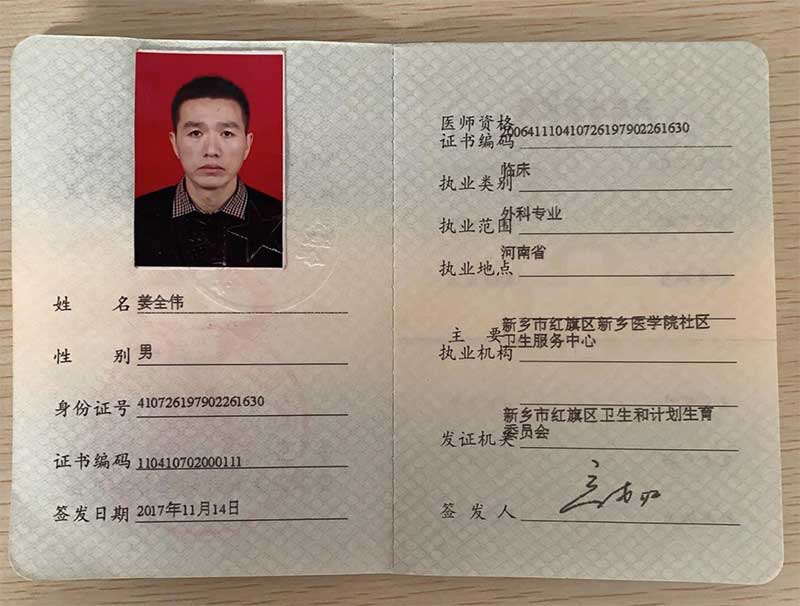 姓 名 姜全伟
性 别 男
身份证号 410726197902261630
证书编码 110410702000111
签发日期 2017年11月14日
医师资格
证书编码 200641110410726197902261630
执业类别 临床
执业范围 外科专业
执业地点 河南省
主 要 新乡市红旗区新乡医学院社区
执业机构 卫生服务中心
新乡市红旗区卫生和计划生育
发证机关 委员会
签 发 人